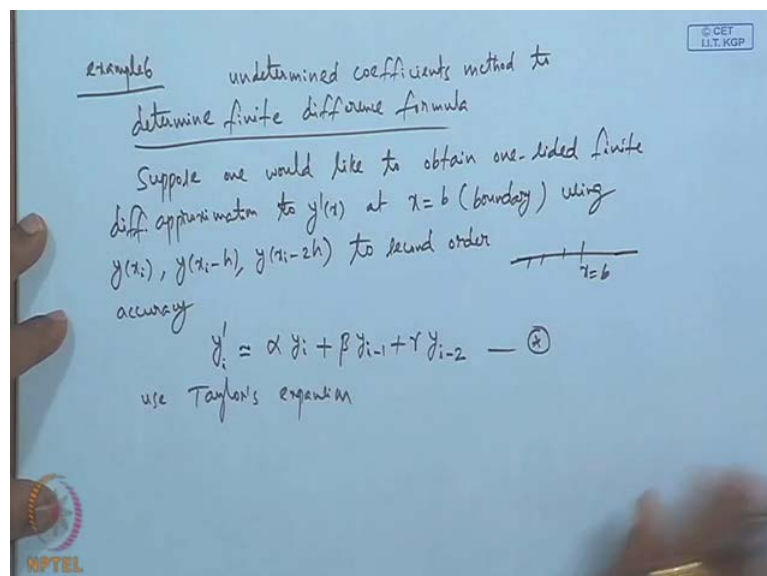 © CET
I.I.T. KGP
example6 undetermined coefficients method to
determine finite difference formula
Suppose one would like to obtain one-sided finite
diff. approximation to y'(x) at x=b (boundary) using
y(xᵢ), y(xᵢ-h), y(xᵢ-2h) to second order
x=b
accuracy
yᵢ' ≃ α yᵢ + β yᵢ₋₁ + γ yᵢ₋₂ — (*)
use Taylor's expansion
NPTEL